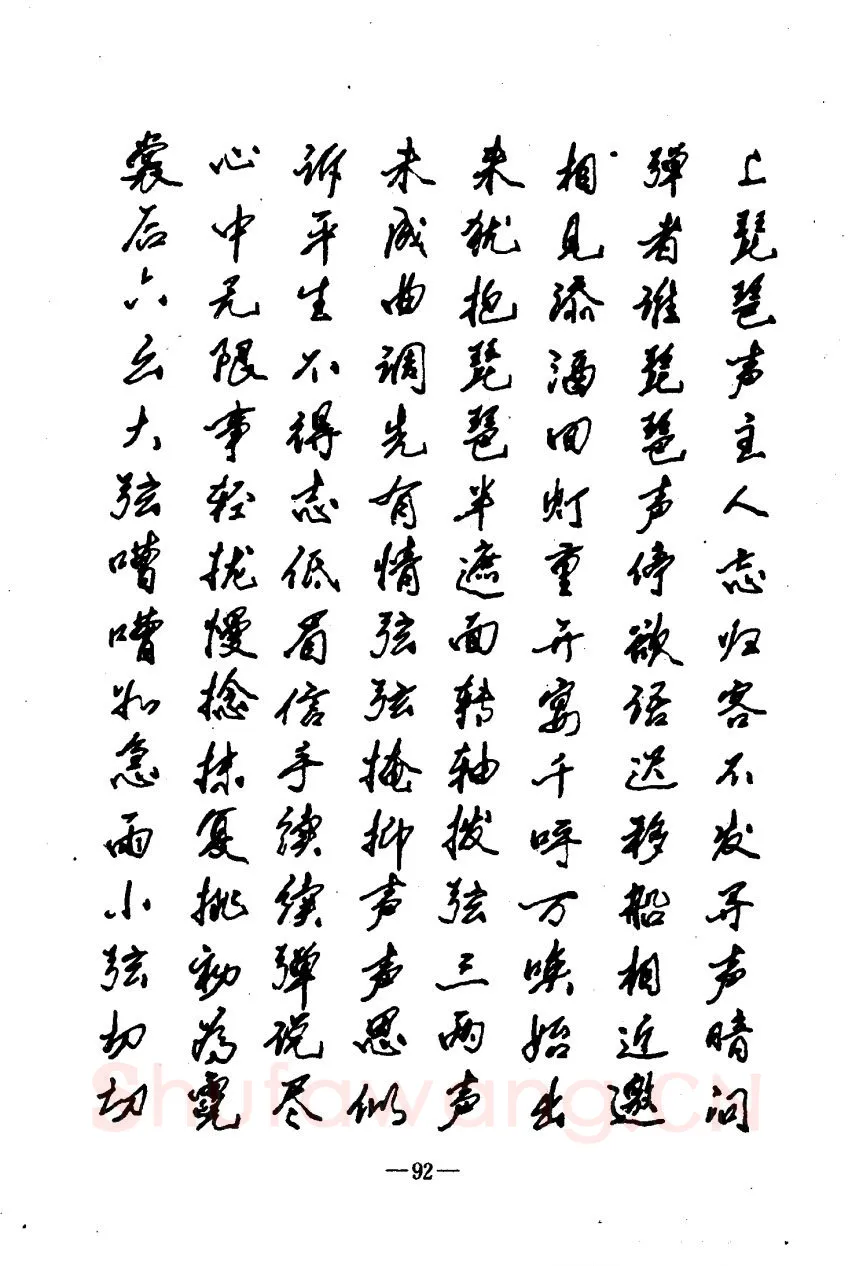 上琵琶声主人忘归客不发寻声暗问
弹者谁琵琶声停欲语迟移船相近邀
相见添酒回灯重开宴千呼万唤始出
来犹抱琵琶半遮面转轴拨弦三两声
未成曲调先有情弦弦掩抑声声思似
诉平生不得志低眉信手续续弹说尽
心中无限事轻拢慢捻抹复挑初为霓
裳后六幺大弦嘈嘈如急雨小弦切切
Shufawang.CN
—92—